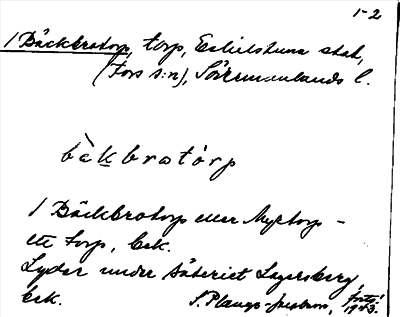 1-2
1 Bäckbrotorp, torp, Eskilstuna stad,
(Fors s:n), Södermanlands l.
bàkbratórp
1 Bäckbrotorp eller Myrtorp -
ett torp, bek.
Lyder under säteriet Lagersberg,
bek.
1943.